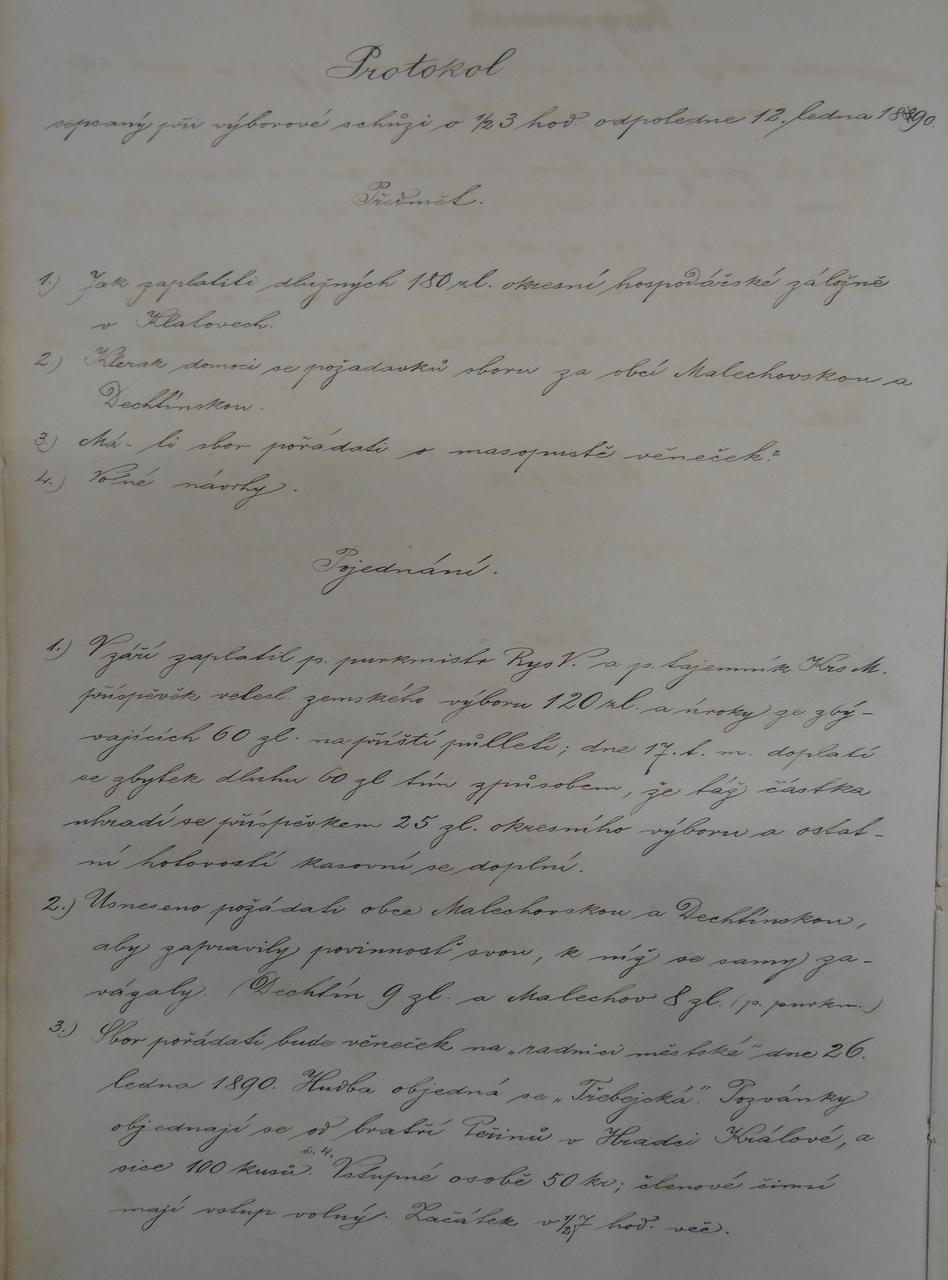 Protokol
sepsaný při výborové schůzi o ½ 3 hod. odpoledne 12. ledna 1890.
Předmět.
1.) Jak zaplatiti dlužných 180 zl. okresní hospodářské záložně
v Klatovech.
2.) Kterak domoci se požadavků sboru za obcí Malechovskou a
Dechtínskou.
3.) Má-li sbor pořádati o masopustě věneček?
4.) Volné návrhy.
Pojednání.
1.) V září zaplatil p. purkmistr Rys V. a p. tajemník Krs M.
příspěvěk velesl. zemského výboru 120 zl. a úroky ze zbý-
vajících 60 zl. na příští půlletí; dne 17. t. m. doplatí
se zbytek dluhu 60 zl tím způsobem, že táž částka
uhradí se příspěvkem 25 zl. okresního výboru a ostat-
ní hotovostí kasovní se doplní.
2.) Usneseno požádati obce Malechovskou a Dechtínskou,
aby zapravily povinnosť svou, k níž se samy za-
vázaly. (Dechtín 9 zl. a Malechov 8 zl. (p. purkm.)
3.) Sbor pořádati bude věneček na „radnici městské" dne 26.
ledna 1890. Hudba objedná se „Třebejcká". Pozvánky
objednají se od bratří Peřinů v Hradci Králové, a
sice 100 kusů č. 4. Vstupné osobě 50 kr; členové činní
mají vstup volný. Začátek v ½7 hod. več.